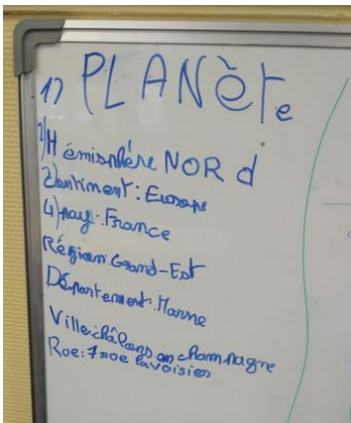 1) PLANète
2)Hémisphère NORd
3)Continent : Europe
4) pay : France
Région : Grand-Est
Département : Marne
Ville : châlons en champagne
Roe : 7 roe lavoisier